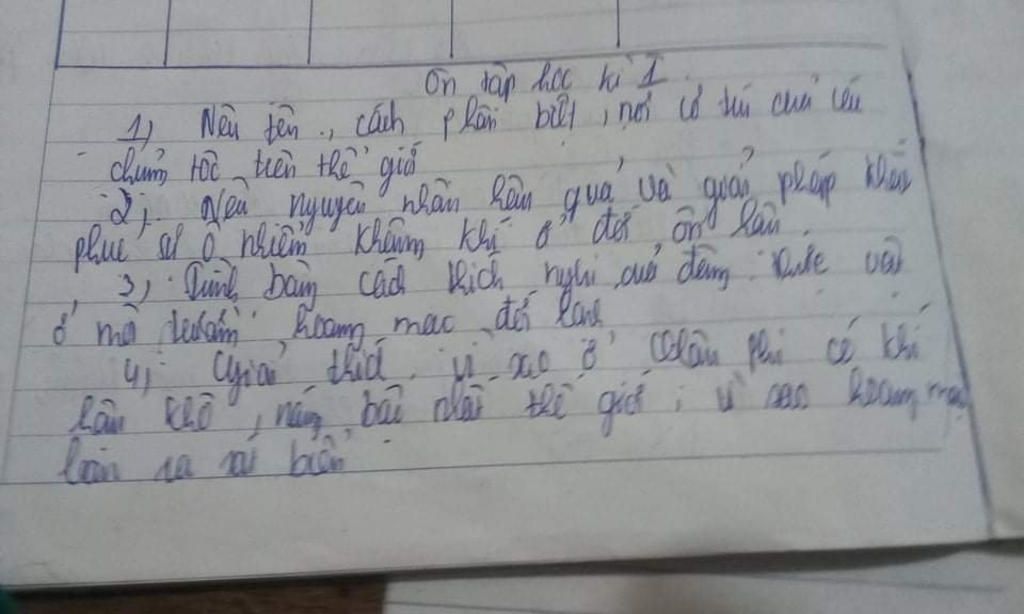 Ôn tập học kì 1
1, Nêu tên, cách phân biệt, nơi cư trú của các
chủng tộc trên thế giới
2, Nêu nguyên nhân hậu quả và giải pháp khắc
phục sự ô nhiễm không khí ở đới ôn hòa.
3, Trình bày cách thích nghi của động thực vật
ở môi trường hoang mạc đới lạnh
4, Giải thích vì sao ở Châu phi có khí
hậu khô, nóng bậc nhất thế giới; vì sao hoang mạc
lan ra sát biển